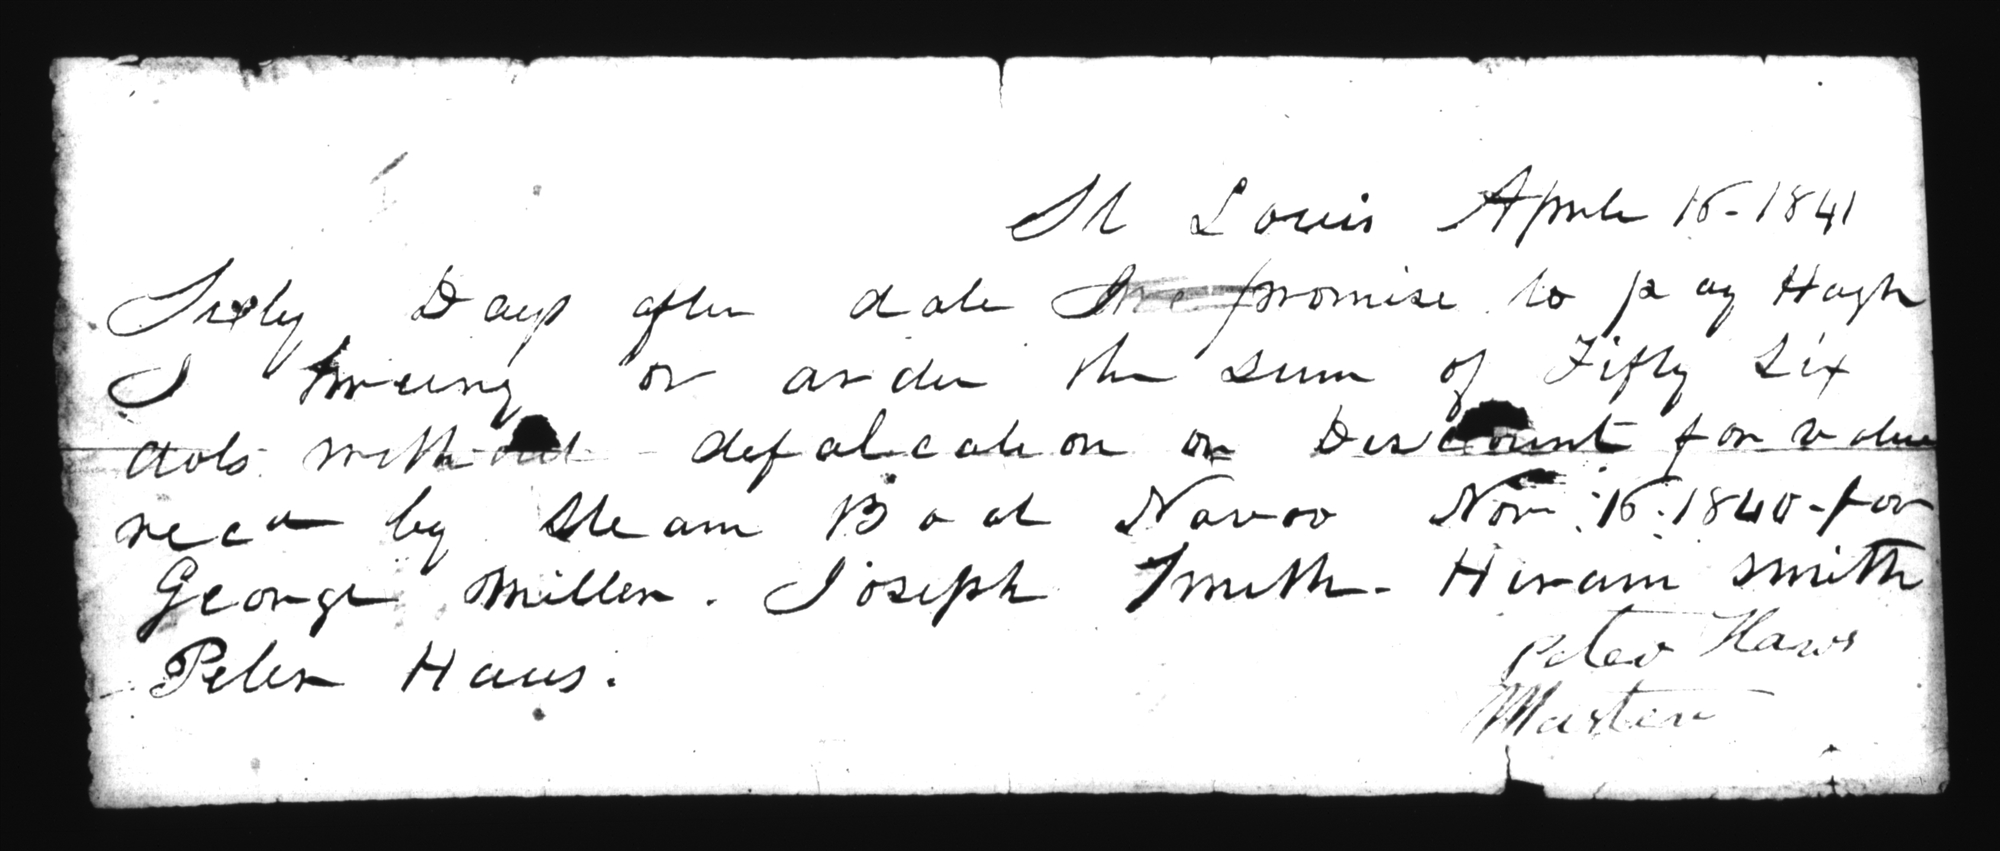 St Louis April 16 - 1841
Sixty Days after date promise to pay Hugh
I or order the sum of Fifty Six
dols without defalcation or Discount for value
recd by Steam Boat Navoo Nov. 16. 1840 - for
George Miller. Joseph Smith - Hiram Smith
Peter Haws.
Peter Haws
Master